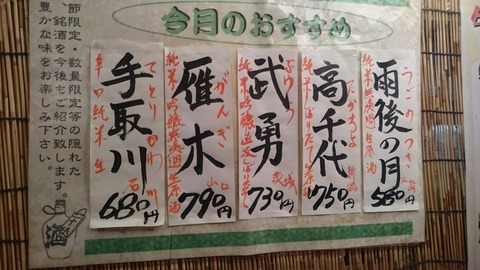 今月のおすすめ
雨後の月
うごのつき
純米無濾過生原酒
580円
高千代
たかちよ
純米しぼりたて生原酒
新潟
750円
武勇
ぶゆう
茨城
730円
雁木
がんぎ
純米吟醸無濾過生原酒
山口
790円
手取川
てとりがわ
辛口純米生
石川
680円
節限定・数量限定等の隠れた
、銘酒を今後もご紹介致します。
豊かな味をお楽しみ下さい。
酒